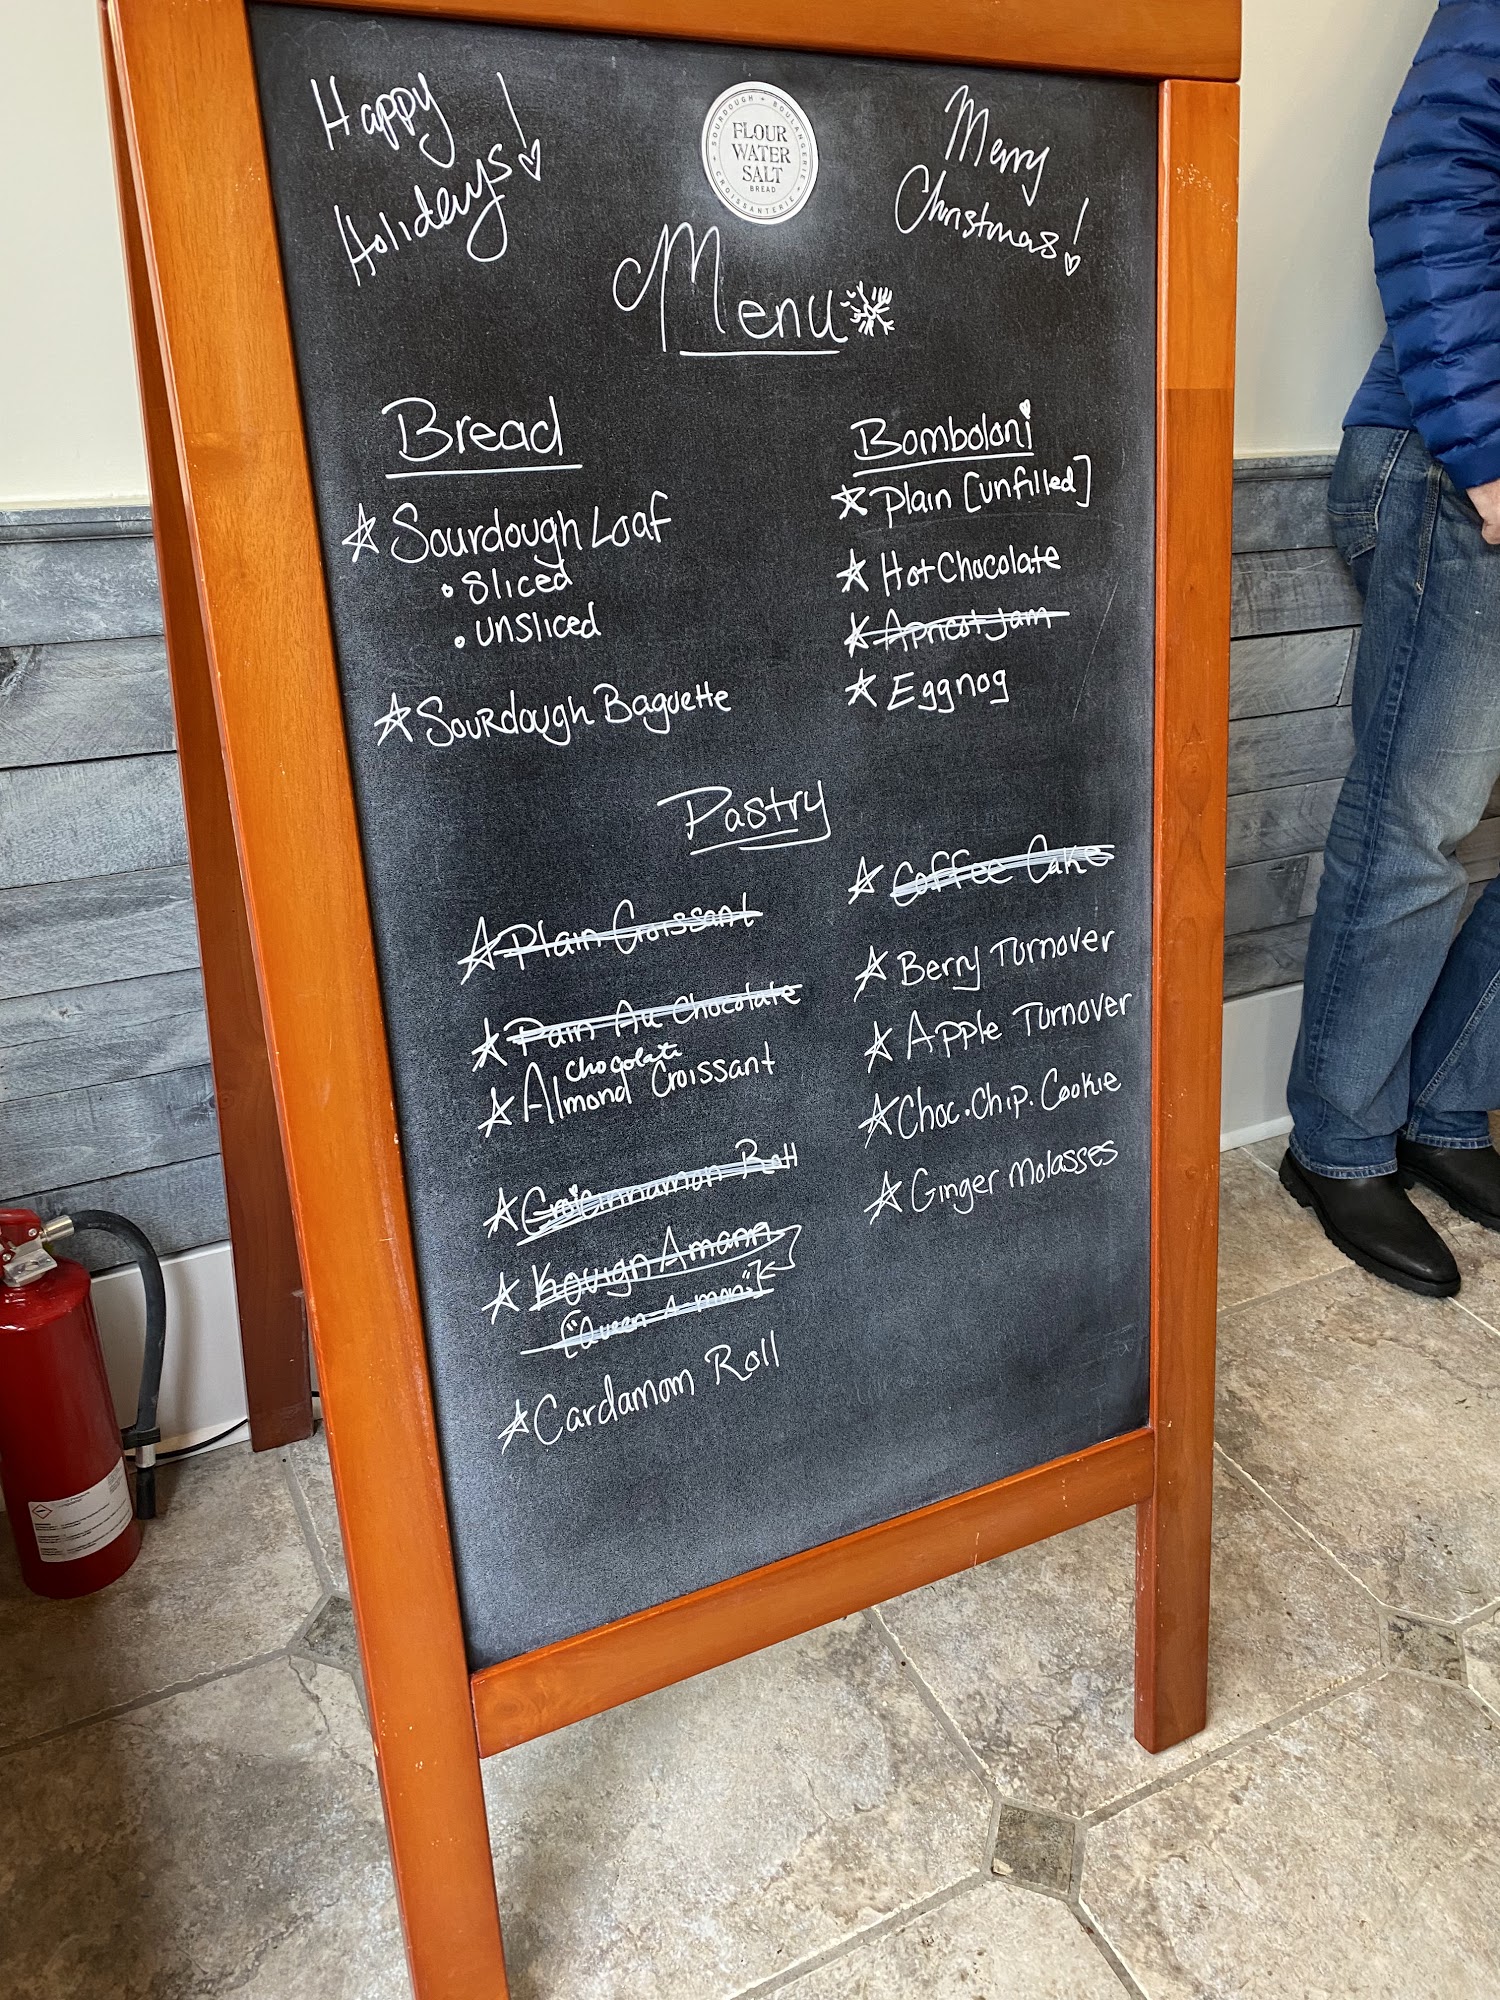 Happy
Holidays!
SOURDOUGH + BOULANGERIE + CROISSANTERIE
FLOUR
WATER
SALT
BREAD
Merry
Christmas!
Menu
Bread
Sourdough Loaf
• Sliced
• Unsliced
Sourdough Baguette
Bomboloni
Plain [unfilled]
Hot Chocolate
Apricot Jam
Eggnog
Pastry
Plain Croissant
Pain Au Chocolate
Chocolate
Almond Croissant
Kouign Amann
["Queen A man"]
Cardamom Roll
Coffee Cake
Berry Turnover
Apple Turnover
Choc. Chip. Cookie
Ginger Molasses